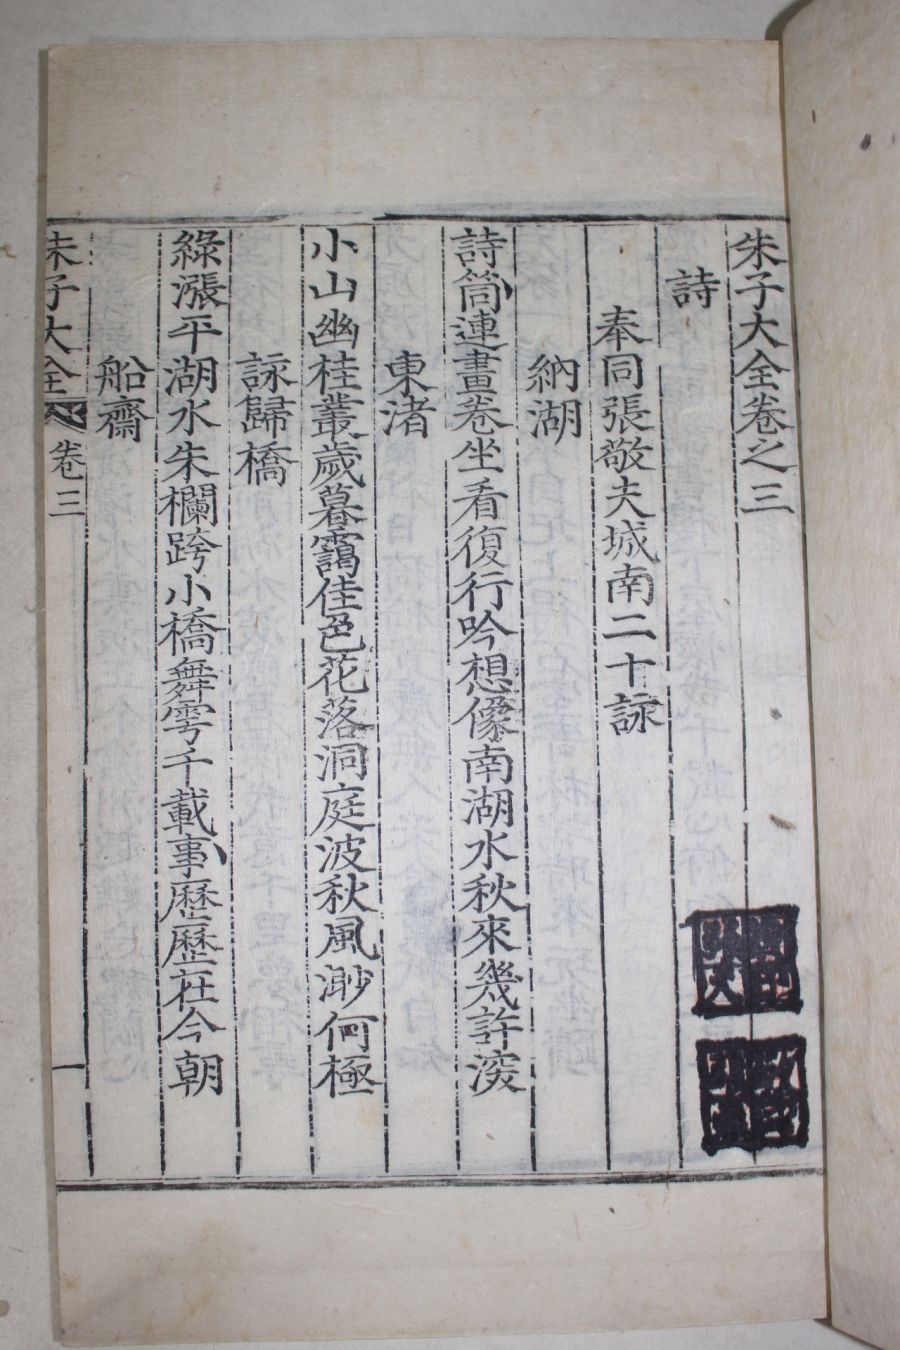 朱子大全卷之三
詩
奉同張敬夫城南二十詠
納湖
詩筒連畫卷坐看復行吟想像南湖水秋來幾許深
東渚
小山幽桂叢歲暮靄佳色花落洞庭波秋風渺何極
詠歸橋
綠漲平湖水朱欄跨小橋舞雩千載事歷歷在今朝
船齋
朱子大全 卷三
一